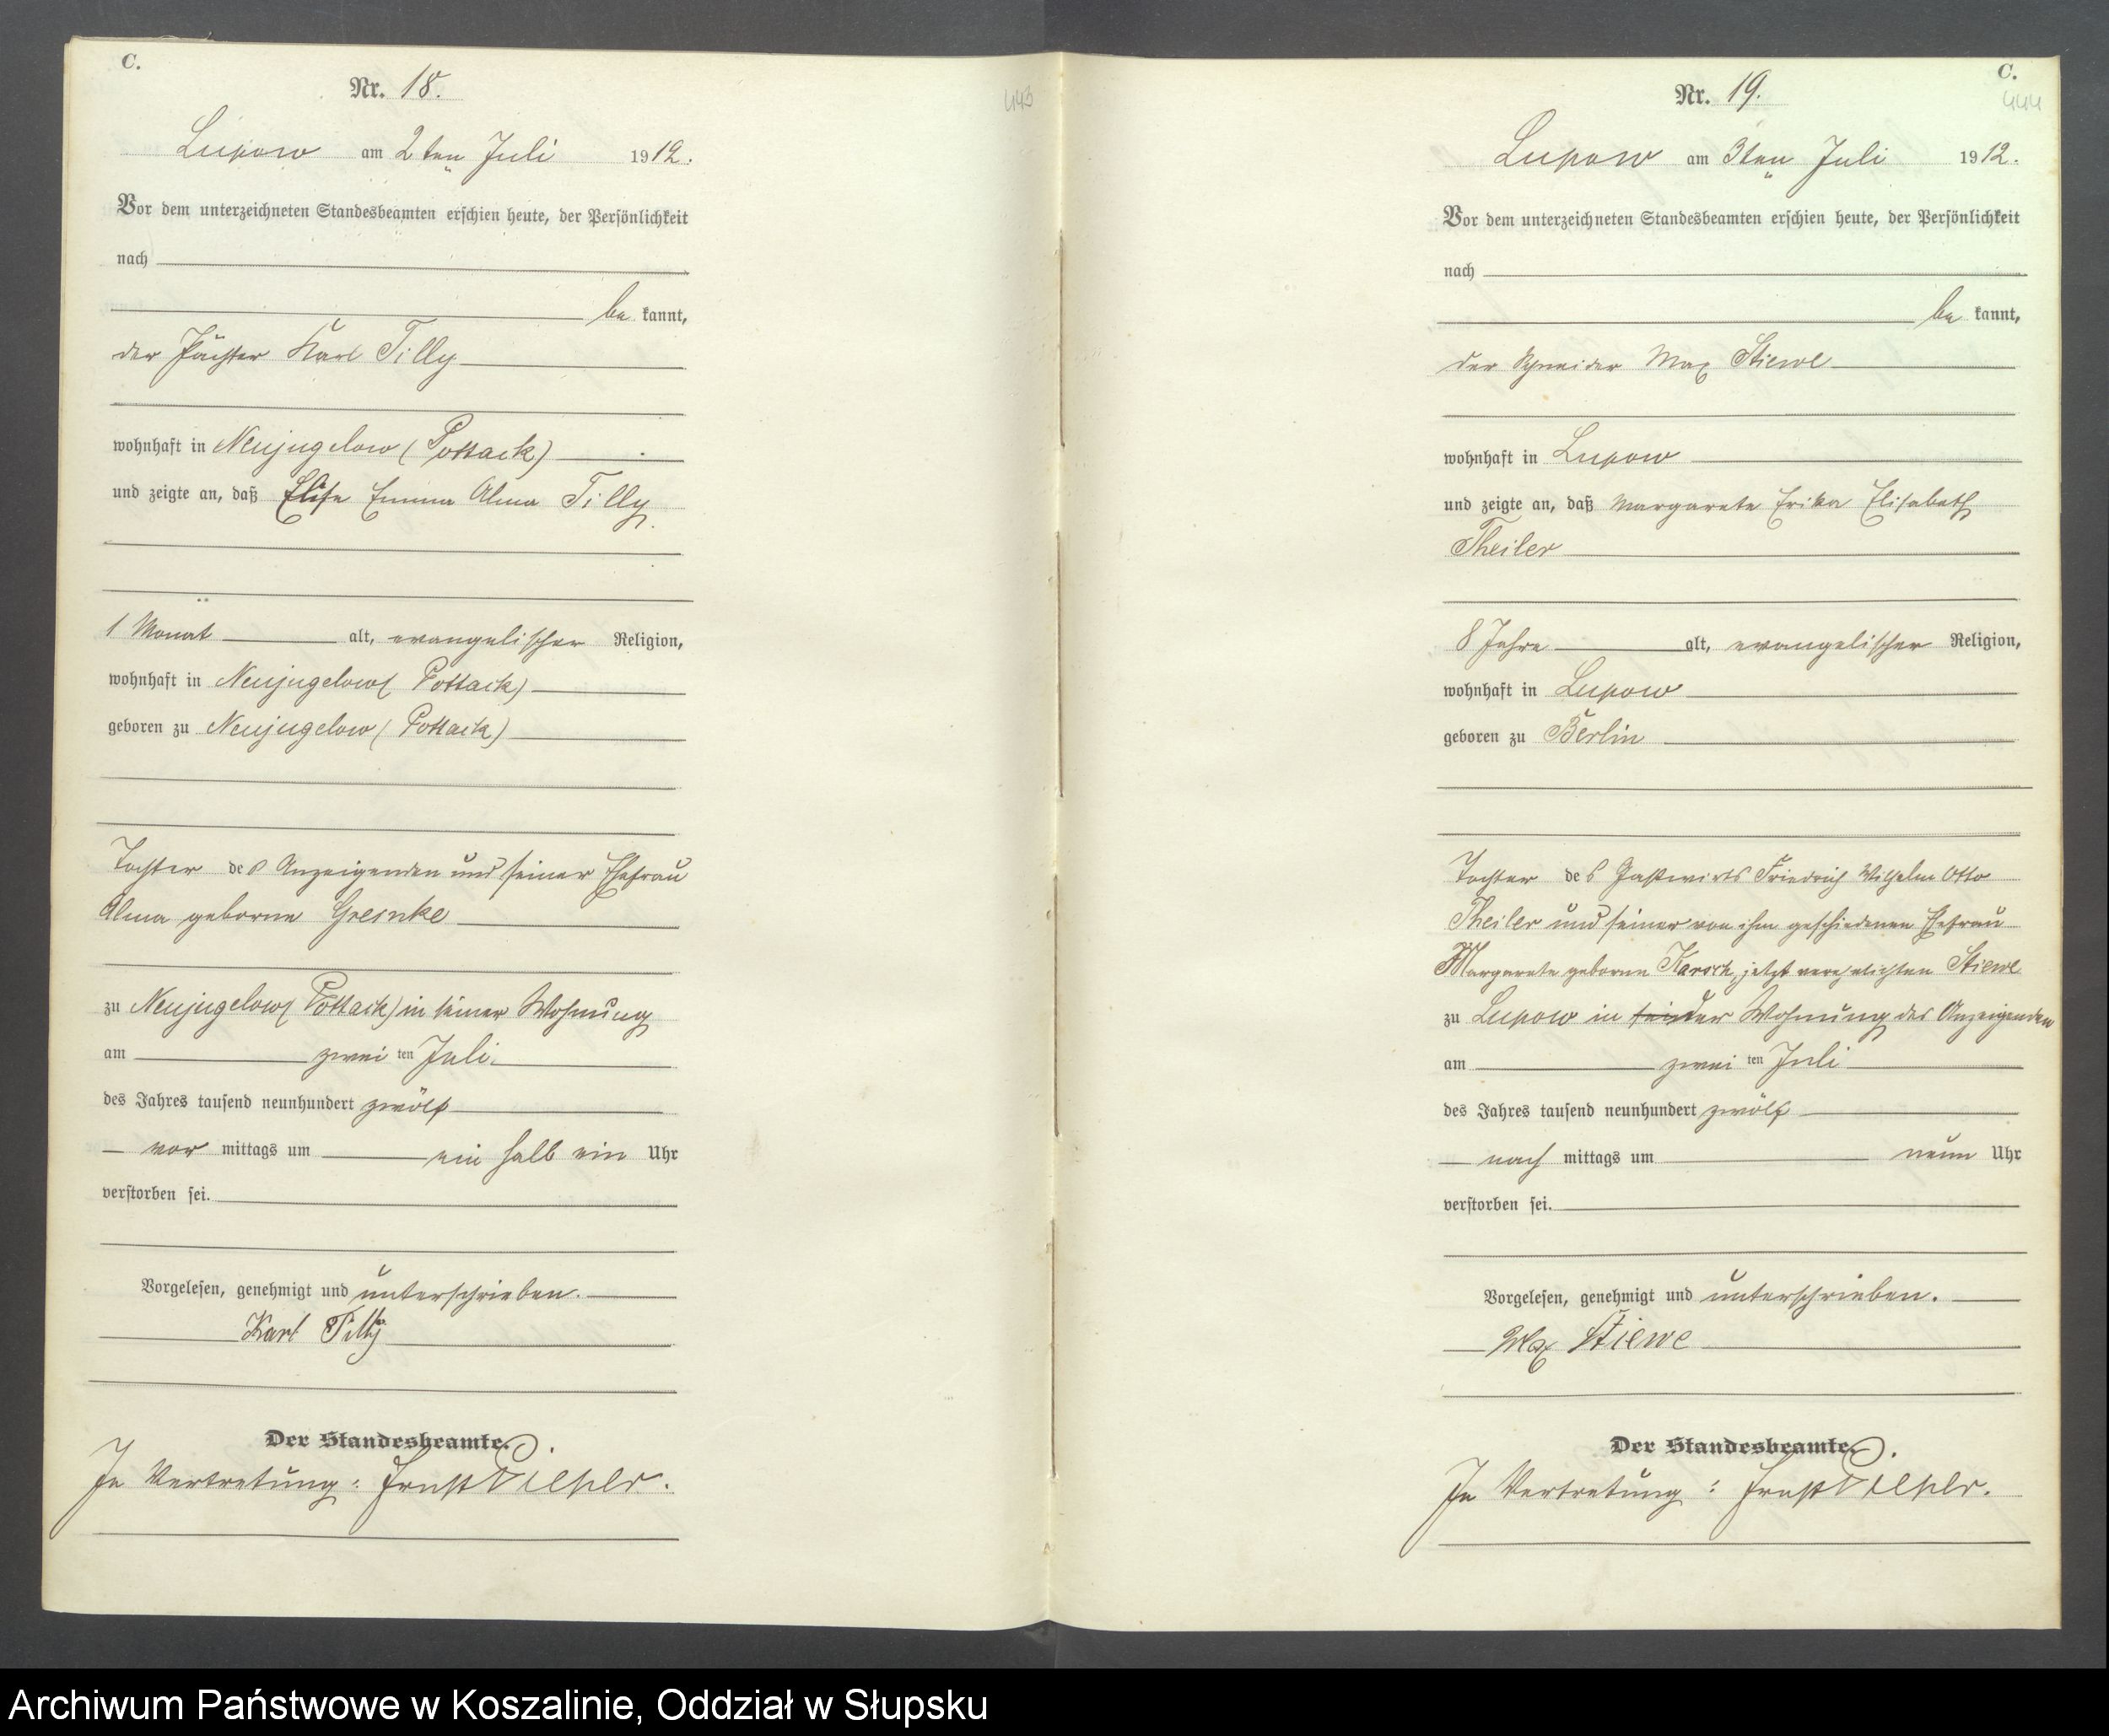 C.
Nr. 18.
443
Lupow am 2ten Juli 1912.
Vor dem unterzeichneten Standesbeamten erschien heute, der Persönlichkeit
nach
be kannt,
der Pächter Karl Tilly
wohnhaft in Neujugelow (Pottack)
und zeigte an, daß Elise Emma Alma Tilly
1 Monat alt, evangelischer Religion,
wohnhaft in Neujugelow (Pottack)
geboren zu Neujugelow (Pottack)
Tochter des Anzeigenden und seiner Ehefrau
Alma geborne Greinke
zu Neujugelow (Pottack) in seiner Wohnung
am zwei ten Juli
des Jahres tausend neunhundert zwölf
vor mittags um ein halb ein Uhr
verstorben sei.
Vorgelesen, genehmigt und unterschrieben.
Karl Tilly
Der Standesbeamte.
In Vertretung: Ernst Pieper.
C.
Nr. 19.
444
Lupow am 3ten Juli 1912.
Vor dem unterzeichneten Standesbeamten erschien heute, der Persönlichkeit
nach
be kannt,
der Schneider Max Stiewe
wohnhaft in Lupow
und zeigte an, daß Margarete Erika Elisabeth
Theiler
8 Jahre alt, evangelischer Religion,
wohnhaft in Lupow
geboren zu Berlin
Tochter des Gastwirts Friedrich Wilhelm Otto
Theiler und seiner von ihm geschiedenen Ehefrau
Margarete geborne Karsch, jetzt verehelichten Stiewe
zu Lupow in der Wohnung des Anzeigenden
am zwei ten Juli
des Jahres tausend neunhundert zwölf
nach mittags um neun Uhr
verstorben sei.
Vorgelesen, genehmigt und unterschrieben.
Max Stiewe
Der Standesbeamte.
In Vertretung: Ernst Pieper.
Archiwum Państwowe w Koszalinie, Oddział w Słupsku